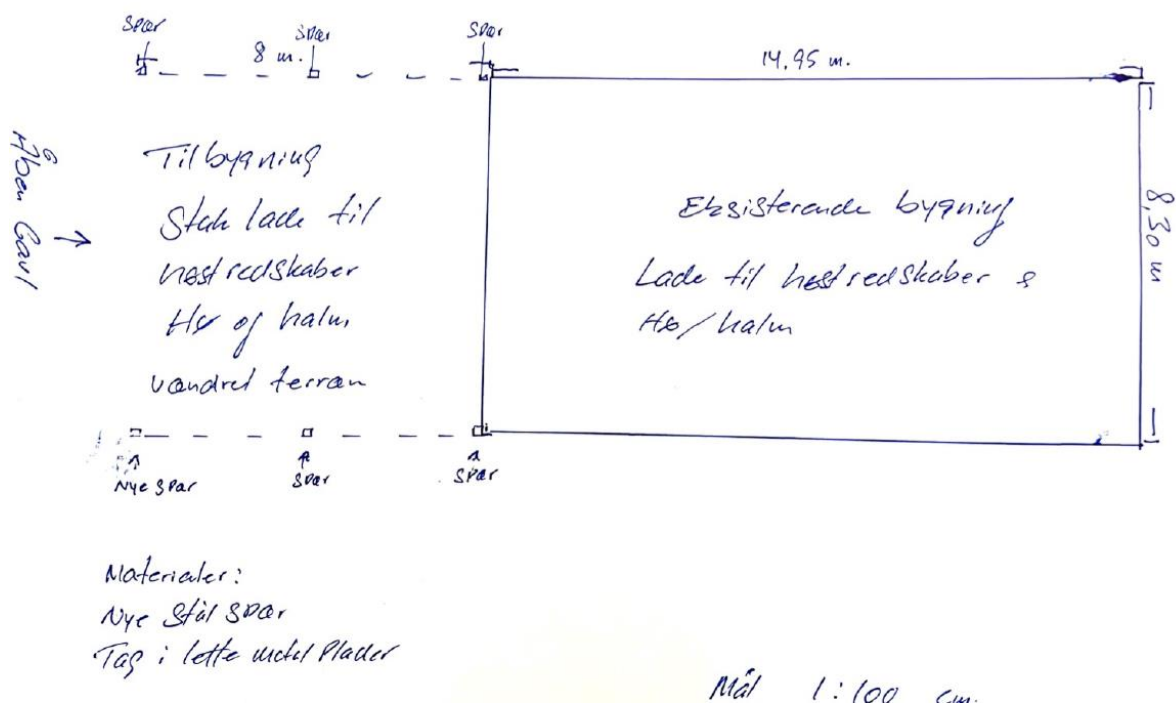 Spær
Spær
Spær
8 m.
14,95 m.
Åben Gavl
Tilbygning
Stak lade til
høstredskaber
Hø og halm
vandret terræn
Eksisterende bygning
Lade til høstredskaber &
Hø/halm
8,30 m
Nye spær
Spær
Spær
Materialer:
Nye Stål Spær
Tag i lette metal Plader
Mål 1:100 cm.